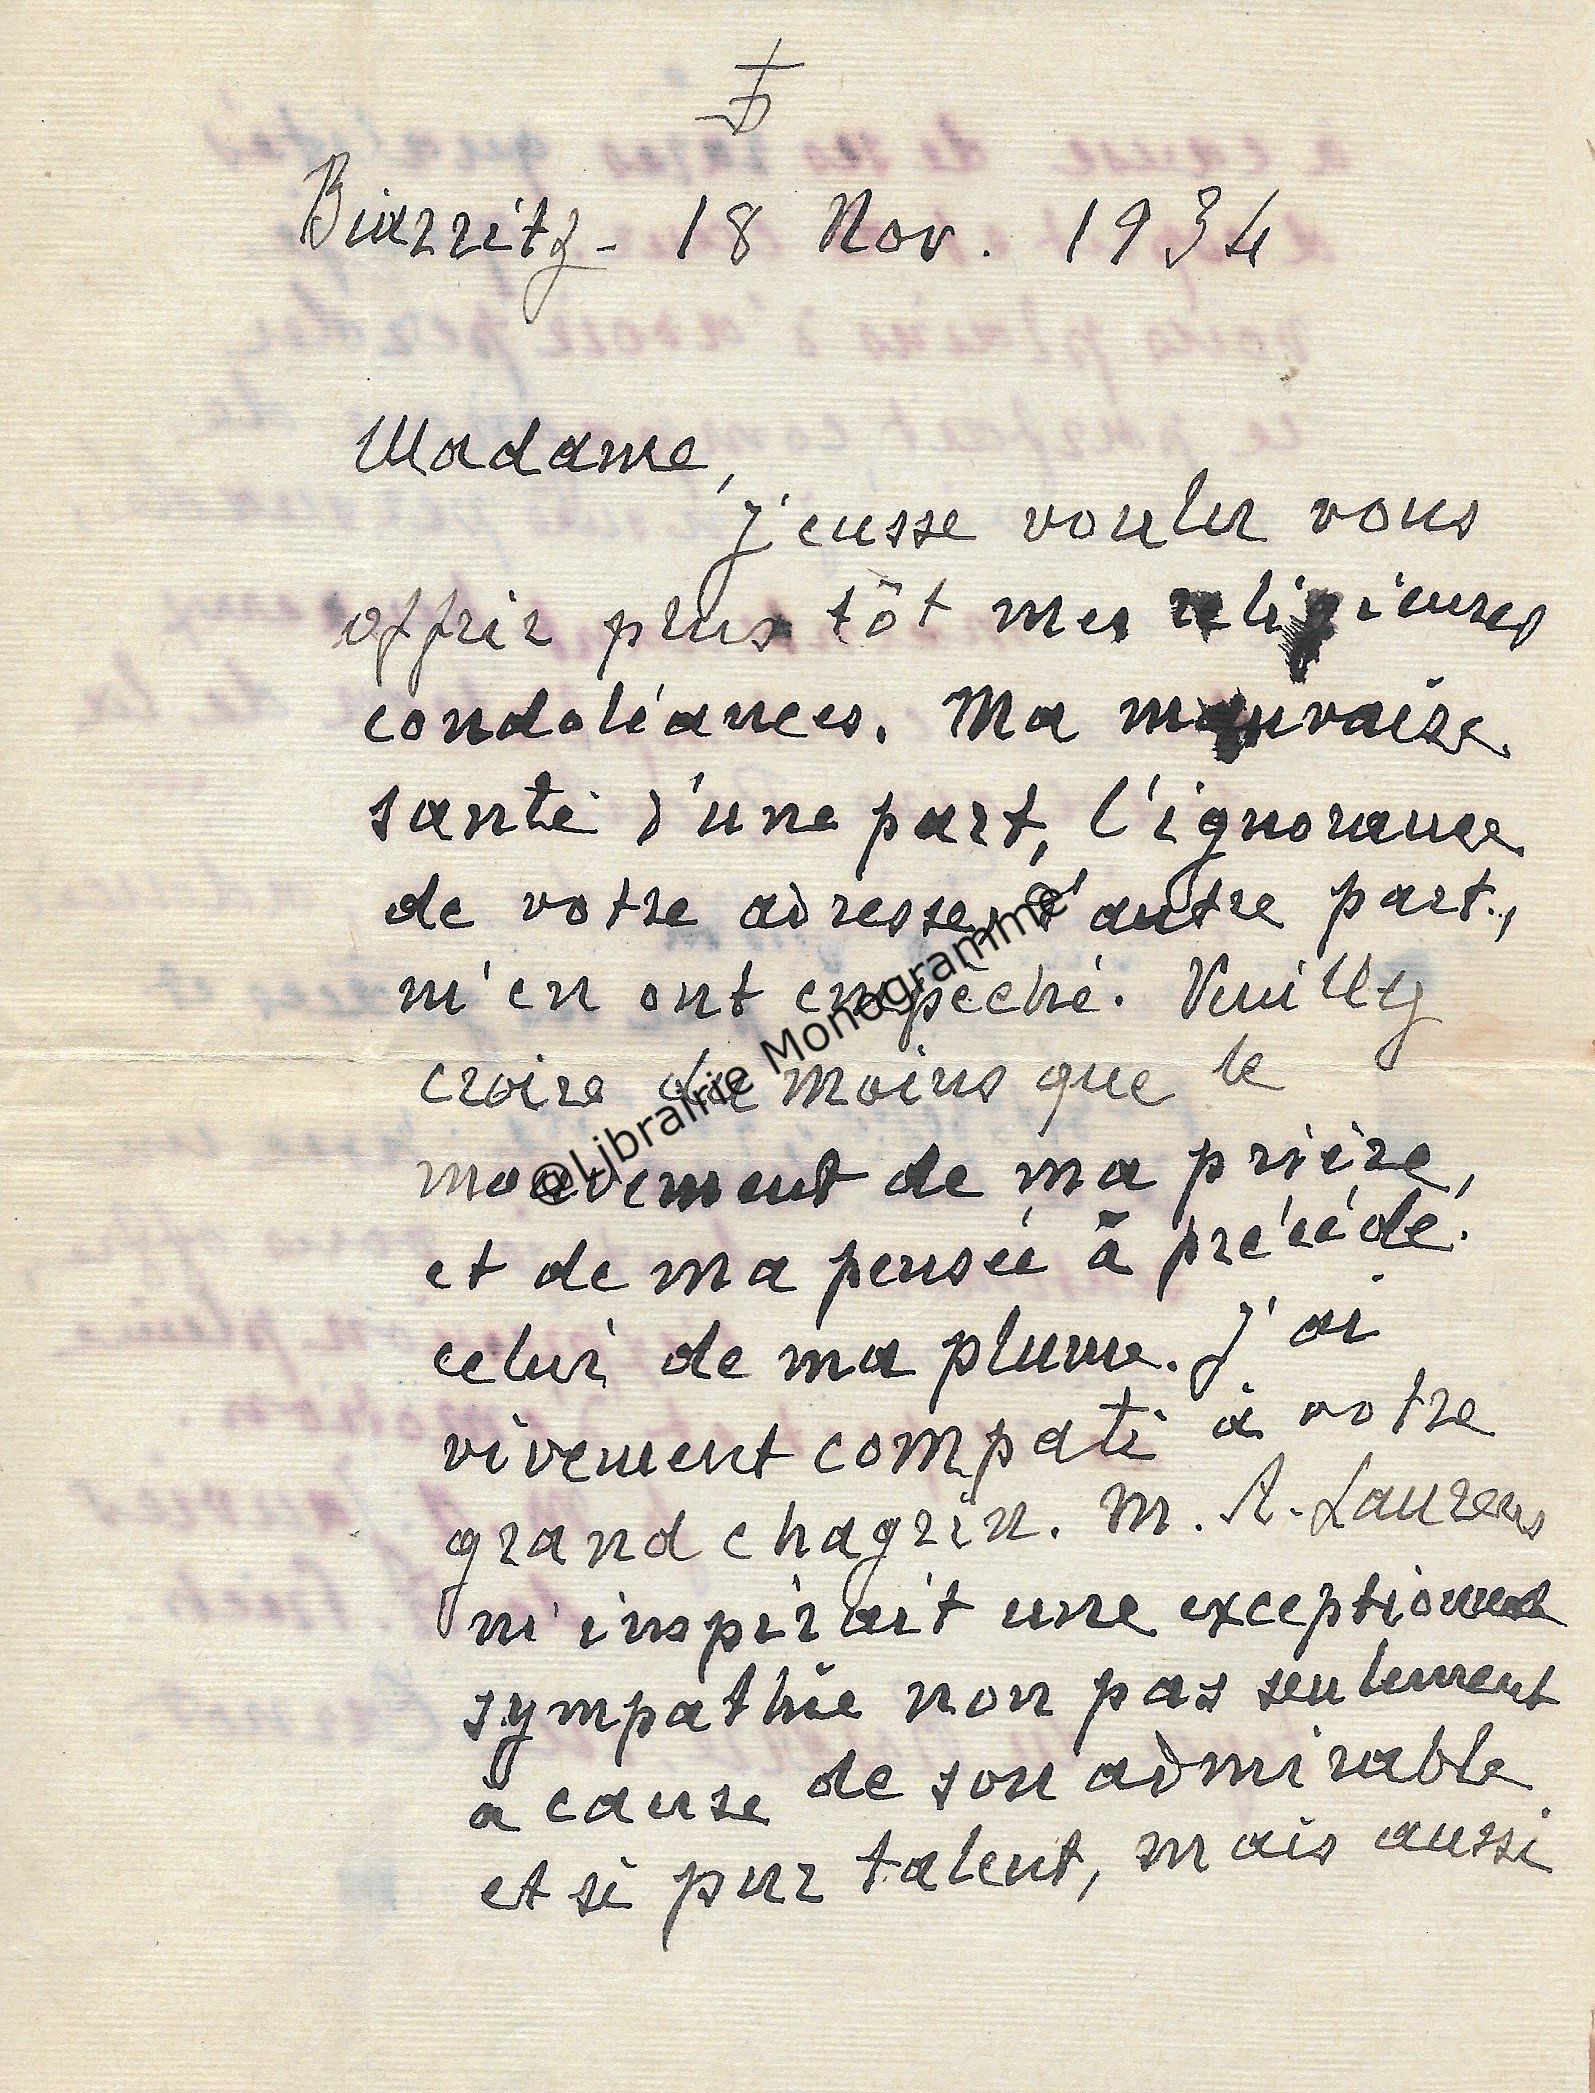 Biarritz - 18 Nov. 1934
Madame,
J'eusse voulu vous
offrir plus tôt mes religieuses
condoléances. Ma mauvaise
santé d'une part, l'ignorance
de votre adresse, d'autre part,
m'en ont empêché. Veuillez
croire du moins que le
mouvement de ma prière,
et de ma pensée a précédé
celui de ma plume. J'ai
vivement compati à votre
grand chagrin. M. A. Laurens
m'inspirait une exceptionnelle
sympathie non pas seulement
à cause de son admirable
et si pur talent, mais aussi
@Librairie Monogramme